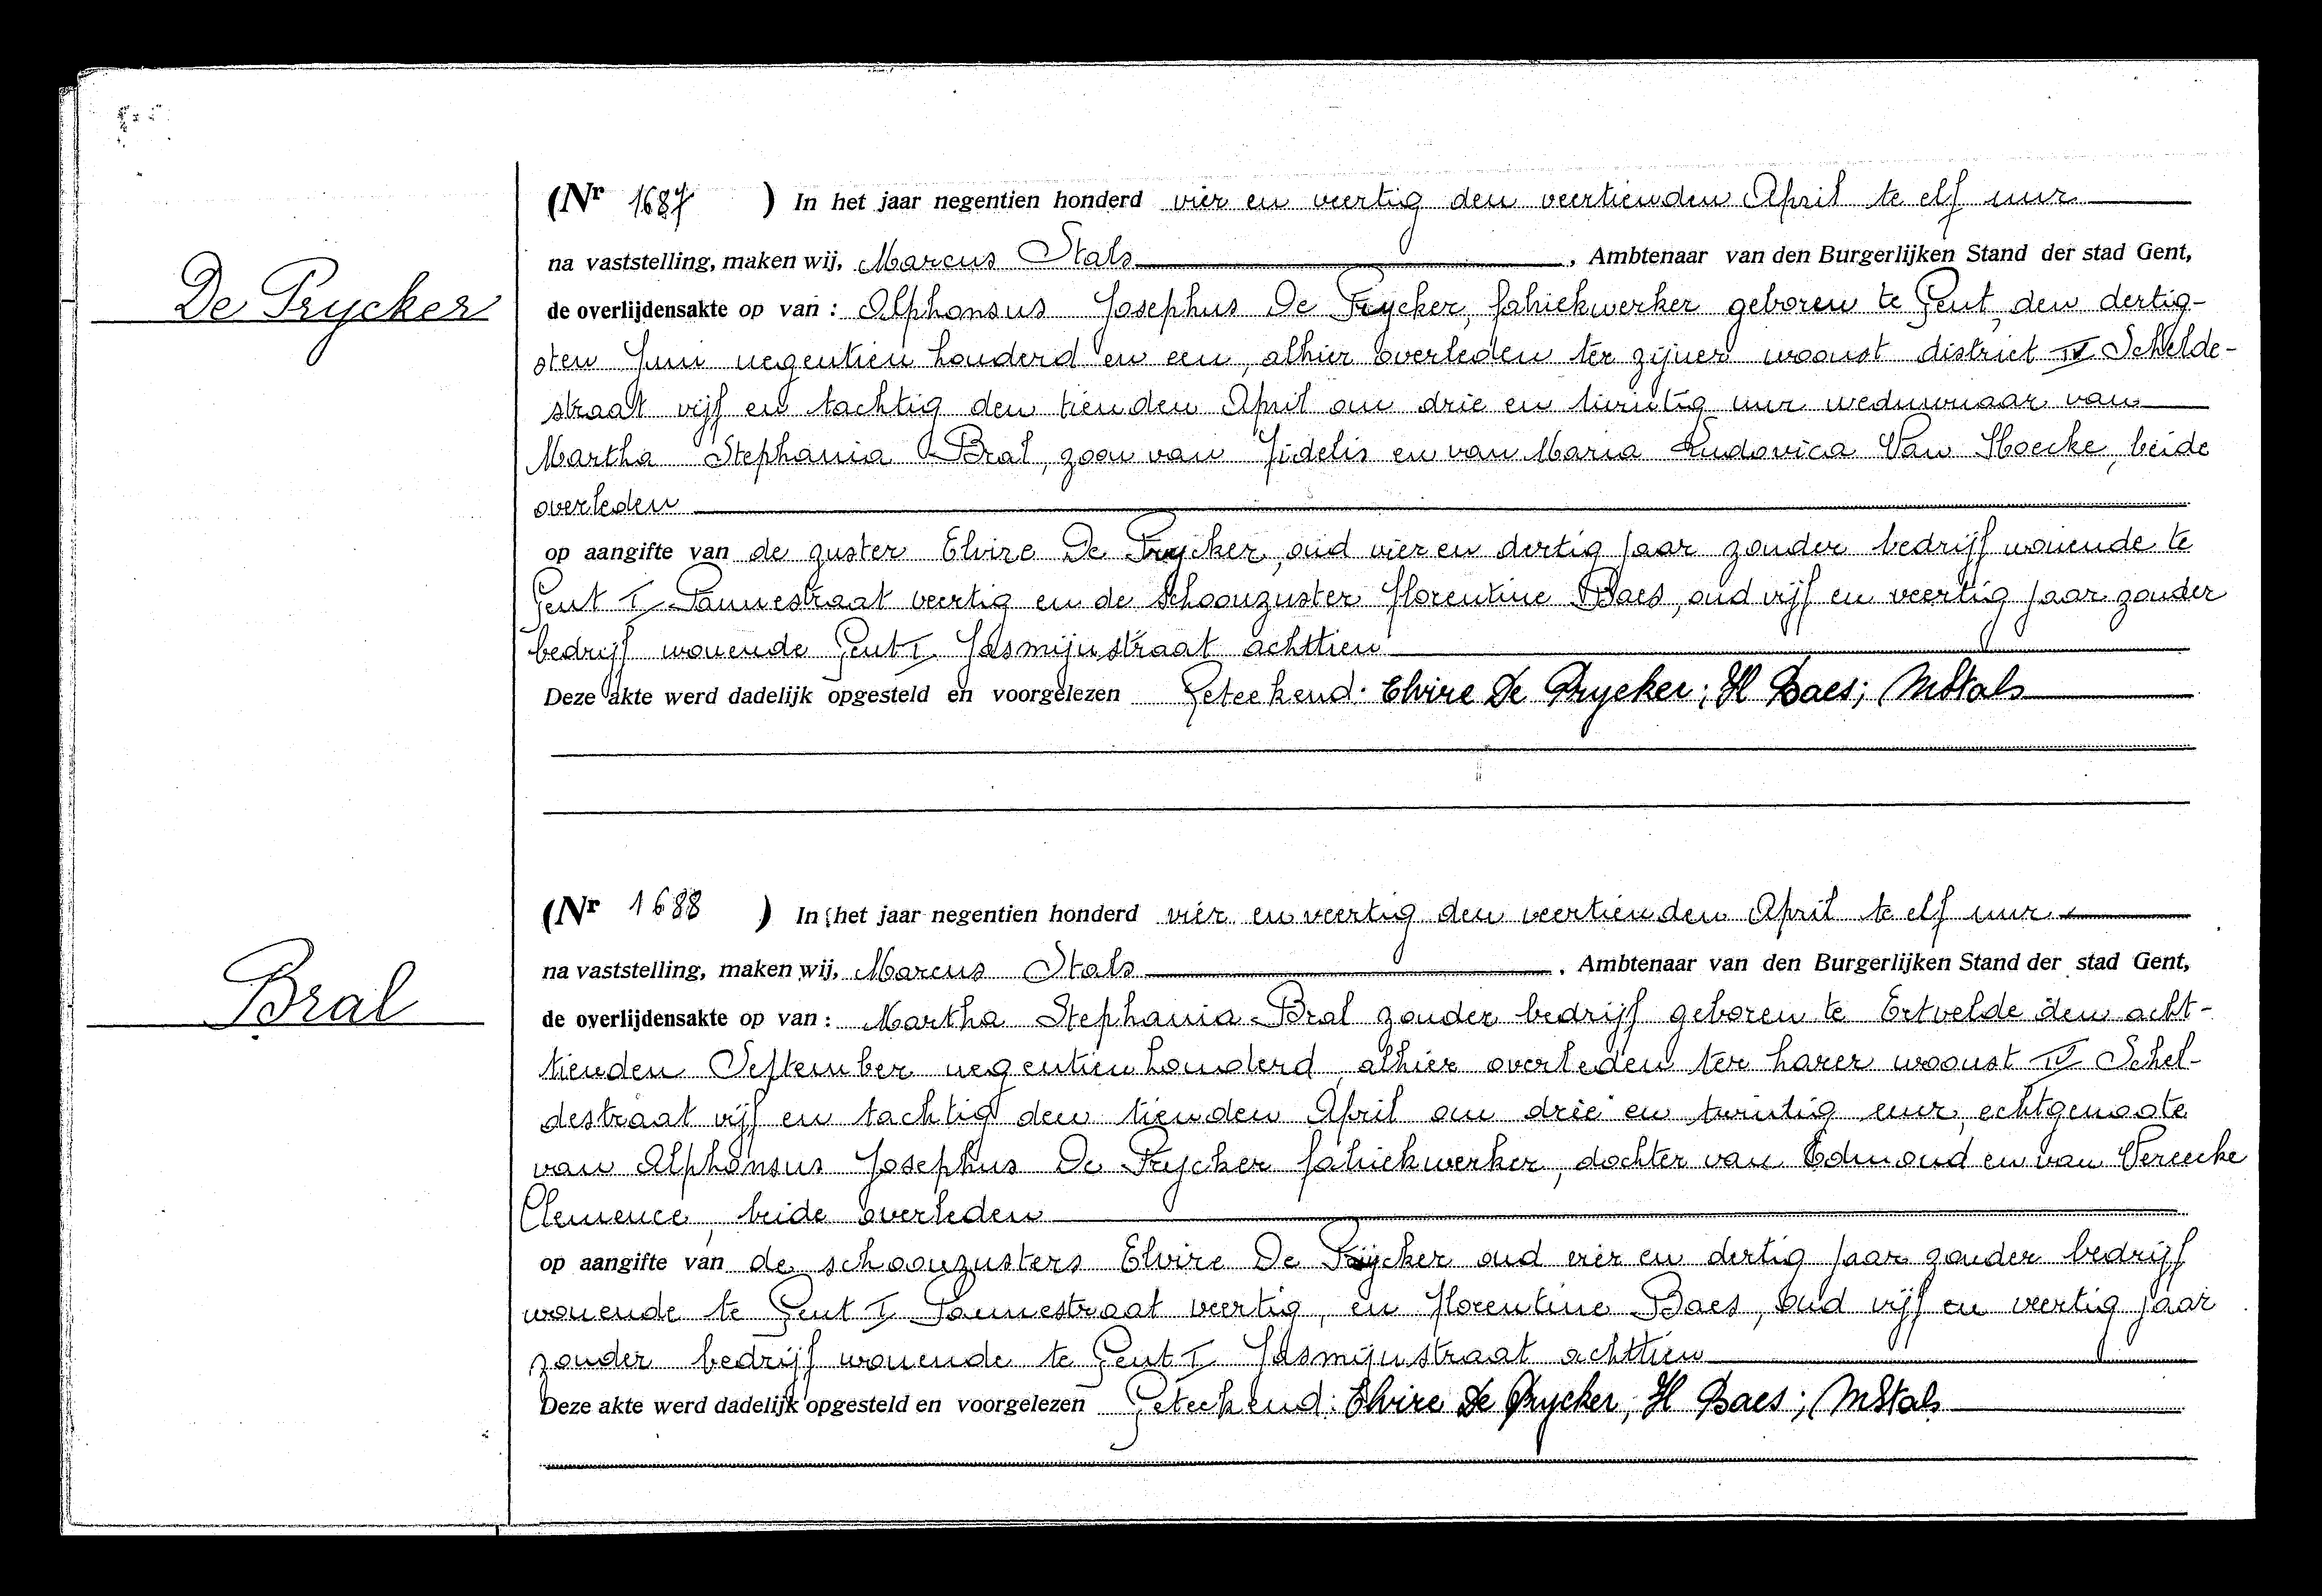 (Nr 1687 ) In het jaar negentien honderd vier en veertig den veertienden April te elf uur
na vaststelling, maken wij, Marcus Stals , Ambtenaar van den Burgerlijken Stand der stad Gent,
De Prycker
de overlijdensakte op van : Alphonsus Josephus De Prycker, fabriekwerker geboren te Gent, den dertig-
sten Juni negentien honderd en een, alhier overleden ter zijner woonst district IV Schelde-
straat vijf en tachtig den tienden April om drie en twintig uur weduwnaar van
Martha Stephania Bral, zoon van Fidelis en van Maria Ludovica Van Hoecke, beide
overleden
op aangifte van de zuster Elvire De Prycker, oud vier en dertig jaar zonder bedrijf wonende te
Gent I Pannestraat veertig en de schoonzuster Florentine Baes, oud vijf en veertig jaar zonder
bedrijf wonende Gent I Jasmijnstraat achttien
Deze akte werd dadelijk opgesteld en voorgelezen Geteekend: Elvire De Prycker; H Baes; MStals
(Nr 1688 ) In het jaar negentien honderd vier en veertig den veertienden April te elf uur
na vaststelling, maken wij, Marcus Stals , Ambtenaar van den Burgerlijken Stand der stad Gent,
Bral
de overlijdensakte op van : Martha Stephania Bral zonder bedrijf geboren te Ertvelde den acht-
tienden September negentien honderd, alhier overleden ter harer woonst IV Schel-
destraat vijf en tachtig den tienden April om drie en twintig uur, echtgenoote
van Alphonsus Josephus De Prycker fabriekwerker, dochter van Edmond en van Vereecke
Clemence, beide overleden
op aangifte van de schoonzusters Elvire De Prycker oud vier en dertig jaar zonder bedrijf
wonende te Gent I Pannestraat veertig, en Florentine Baes, oud vijf en veertig jaar
zonder bedrijf wonende te Gent I Jasmijnstraat achttien
Deze akte werd dadelijk opgesteld en voorgelezen Geteekend: Elvire De Prycker; H Baes; MStals